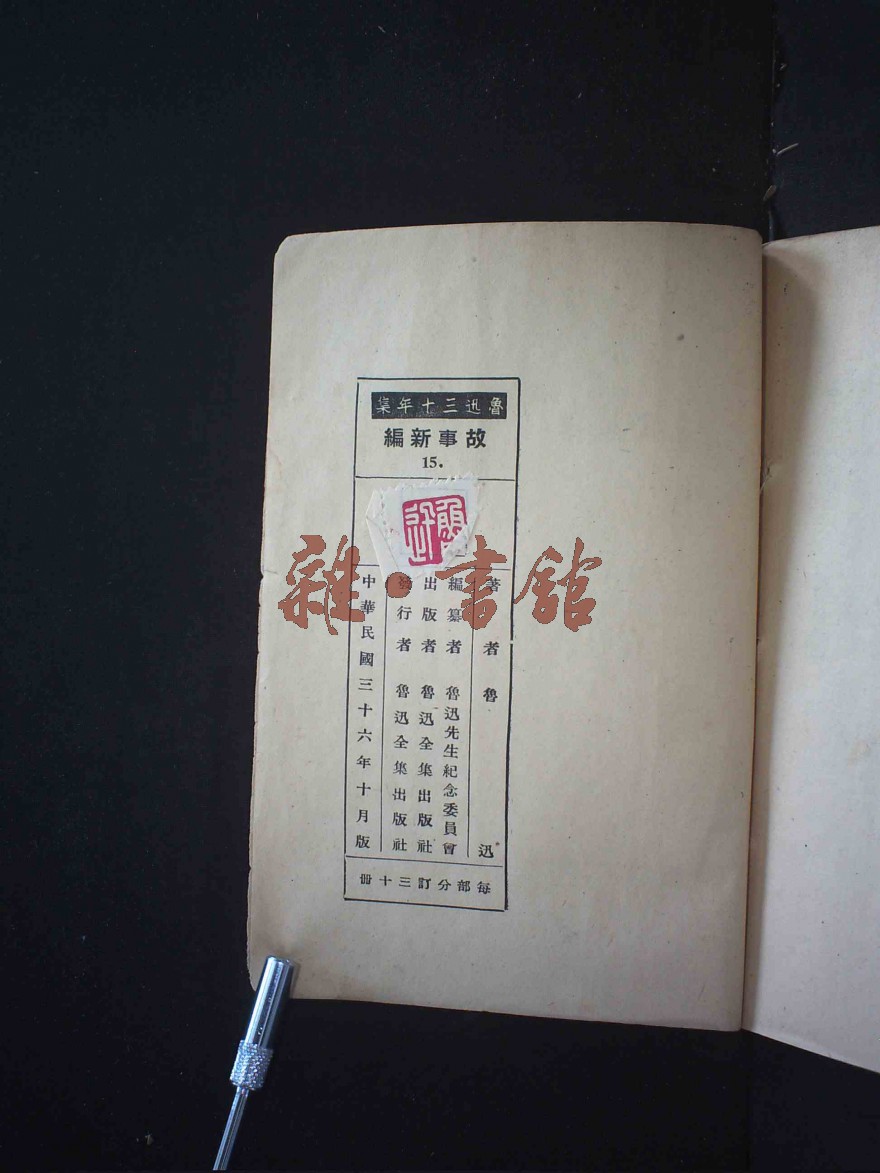 魯迅三十年集
故事新編
15.
魯迅
著者魯迅
編纂者魯迅先生紀念委員會
出版者魯迅全集出版社
發行者魯迅全集出版社
中華民國三十六年十月版
每部分訂三十冊
雜·書館